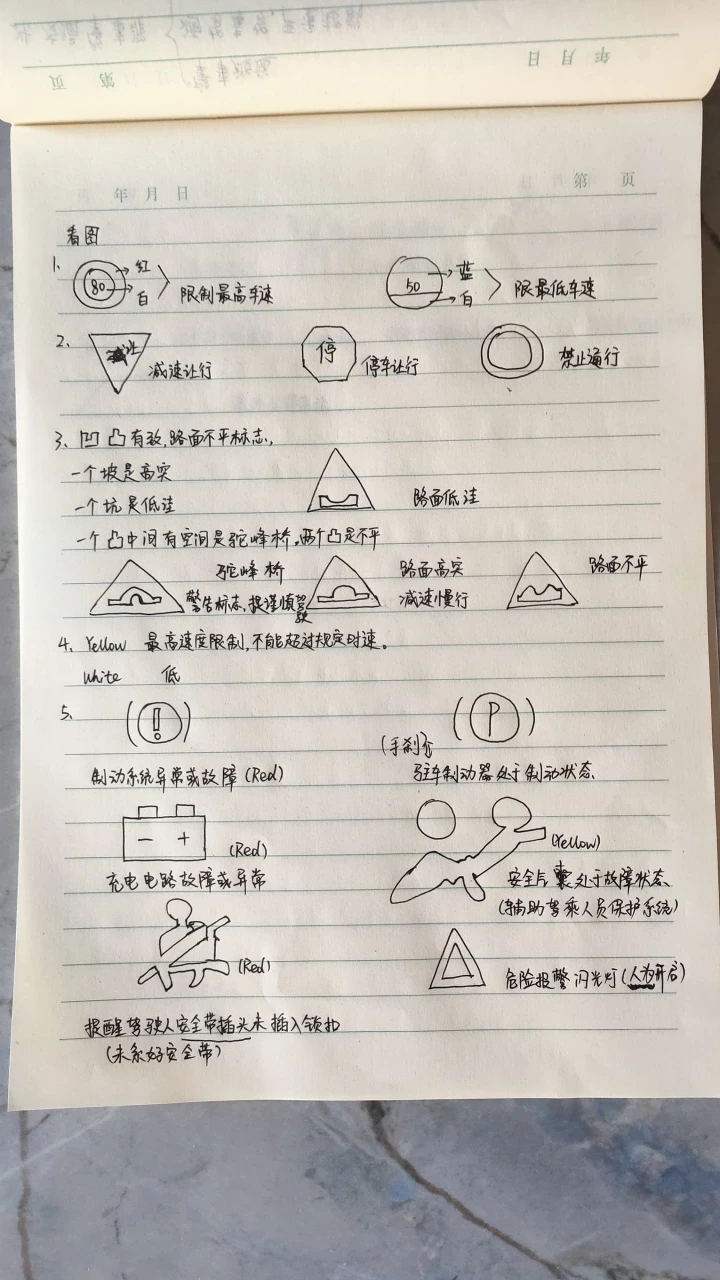 年 月 日
第 页
年 月 日
第 页
看图
1、 80 红 白 限制最高车速 50 蓝 白 限最低车速
2、 减让 减速让行 停 停车让行 禁止通行
3、凹 凸有致,路面不平标志,
一个坡是高突
一个坑是低洼 路面低洼
一个凸中间有空间是驼峰桥,两个凸是不平
驼峰桥 路面高突 路面不平
警告标志,提谨慎驾驶 减速慢行
4、Yellow 最高速度限制,不能超过规定时速。
White 低
5、 (!) (P)
(手刹)
制动系统异常或故障(Red) 驻车制动器处于制动状态
- + (Red) (Yellow)
充电电路故障或异常 安全气囊处于故障状态
(辅助驾乘人员保护系统)
(Red) 危险报警闪光灯(人为开启)
提醒驾驶人安全带插头未插入锁扣
(未系好安全带)